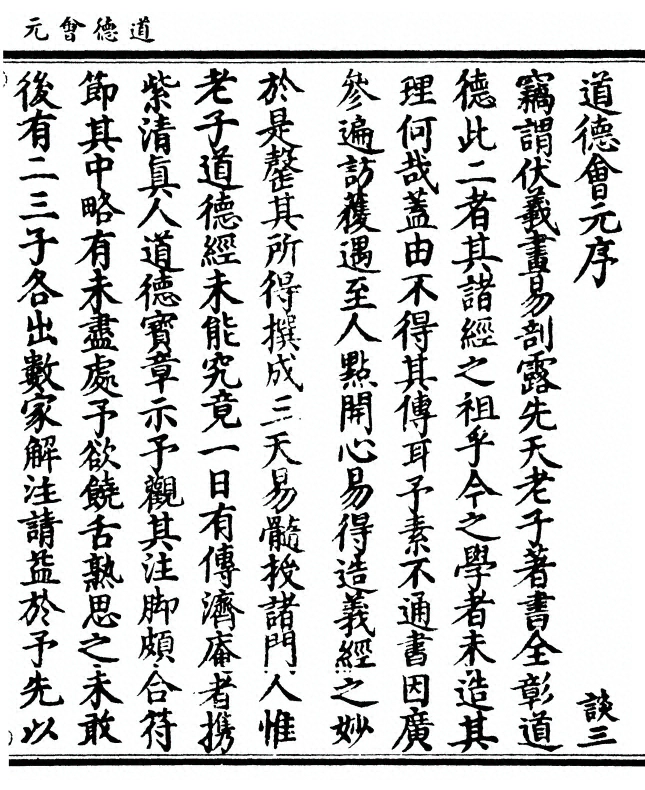 道德會元
道德會元序
談三
竊謂伏羲畫易剖露先天老子著書全彰道
德此二者其諸經之祖乎今之學者未造其
理何哉蓋由不得其傳耳予素不通書因廣
參遍訪獲遇至人點開心易得造義經之妙
於是罄其所得撰成三天易髓授諸門人惟
老子道德經未能究竟一日有傳濟庵者携
紫清眞人道德寳章示予觀其注脚頗合符
節其中略有未盡處予欲饒舌熟思之未敢
後有二三子各出數家解注請益於予先以